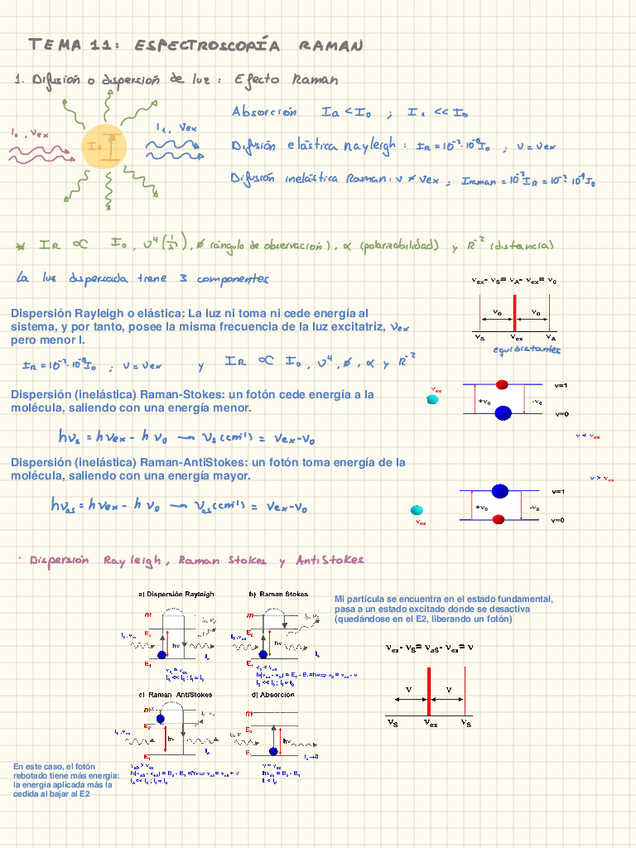 TEMA 11: ESPECTROSCOPÍA RAMAN
1. Difusión o dispersión de luz: Efecto Raman
I₀, νex
Iₜ, νex
Absorción Ia < I₀ ; Iₜ << I₀
Difusión elástica Rayleigh: I_R = 10⁻³·10⁻⁸ I₀ ; ν = νex
Difusión inelástica Raman: ν ≠ νex ;
* I_R ∝ I₀, ν⁴ (1/λ), ø (ángulo de observación), α (polarizabilidad) y R⁻² (distancia)
La luz dispersada tiene 3 componentes
νex- νS= νA- νex= ν0
ν0 ν0
νS νex νA
equidistantes
Dispersión Rayleigh o elástica: La luz ni toma ni cede energía al
sistema, y por tanto, posee la misma frecuencia de la luz excitatriz, νex
pero menor I.
I_R = 10⁻³·10⁻⁸ I₀ ; ν = νex y I_R ∝ I₀, ν⁴, ø, α y R⁻²
Dispersión (inelástica) Raman-Stokes: un fotón cede energía a la
molécula, saliendo con una energía menor.
hνs = hνex - hν₀ → νs (cm⁻¹) = νex-ν₀
νex
v=1
+ν0 -ν0
v=0
ν < νex
Dispersión (inelástica) Raman-AntiStokes: un fotón toma energía de la
molécula, saliendo con una energía mayor.
hνas = hνex - hν₀ → νas (cm⁻¹) = νex-ν₀
ν > νex
v=1
+ν0 -ν0
νex
v=0
· Dispersión Rayleigh, Raman Stokes y AntiStokes
a) Dispersión Rayleigh
b) Raman Stokes
m
E2
hν
E1
m
E2
hν
E1
Mi partícula se encuentra en el estado fundamental,
pasa a un estado excitado donde se desactiva
(quedándose en el E2, liberando un fotón)
νex- νS= νaS- νex= ν
ν ν
νS νex νS
c) Raman AntiStokes
d) Absorción
m
E2
hν
E1
E2
hν
E1
En este caso, el fotón
rebotado tiene más energía:
la energía aplicada más la
cedida al bajar al E2